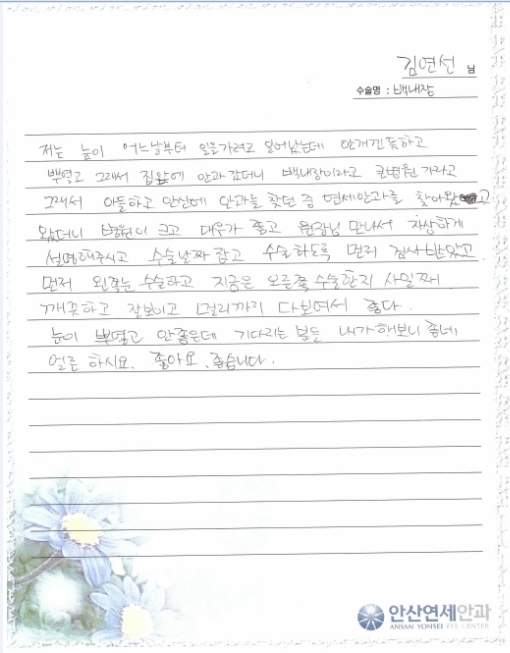 김연선 님
수술명 : 백내장
저는 눈이 어느날부터 일을가려고 일어났는데 안개낀듯하고
뿌옇고 그래서 집앞에 안과 갔더니 백내장이라고 큰병원 가라고
그래서 아들하고 안산에 안과를 찾던 중 연세안과를 찾아왔고
왔더니 병원이 크고 대우가 좋고 원장님 만나서 자상하게
설명해주시고 수술날짜 잡고 수술하도록 먼저 검사 받았고
먼저 왼쪽눈 수술하고 지금은 오른쪽 수술한지 사일째
깨끗하고 잘보이고 멀리까지 다보여서 좋다.
눈이 뿌옇고 안좋은데 기다리는 분들 내가해보니 좋네
얼른 하시요. 좋아요. 좋습니다.
안산연세안과
ANSAN YONSEI EYE CENTER